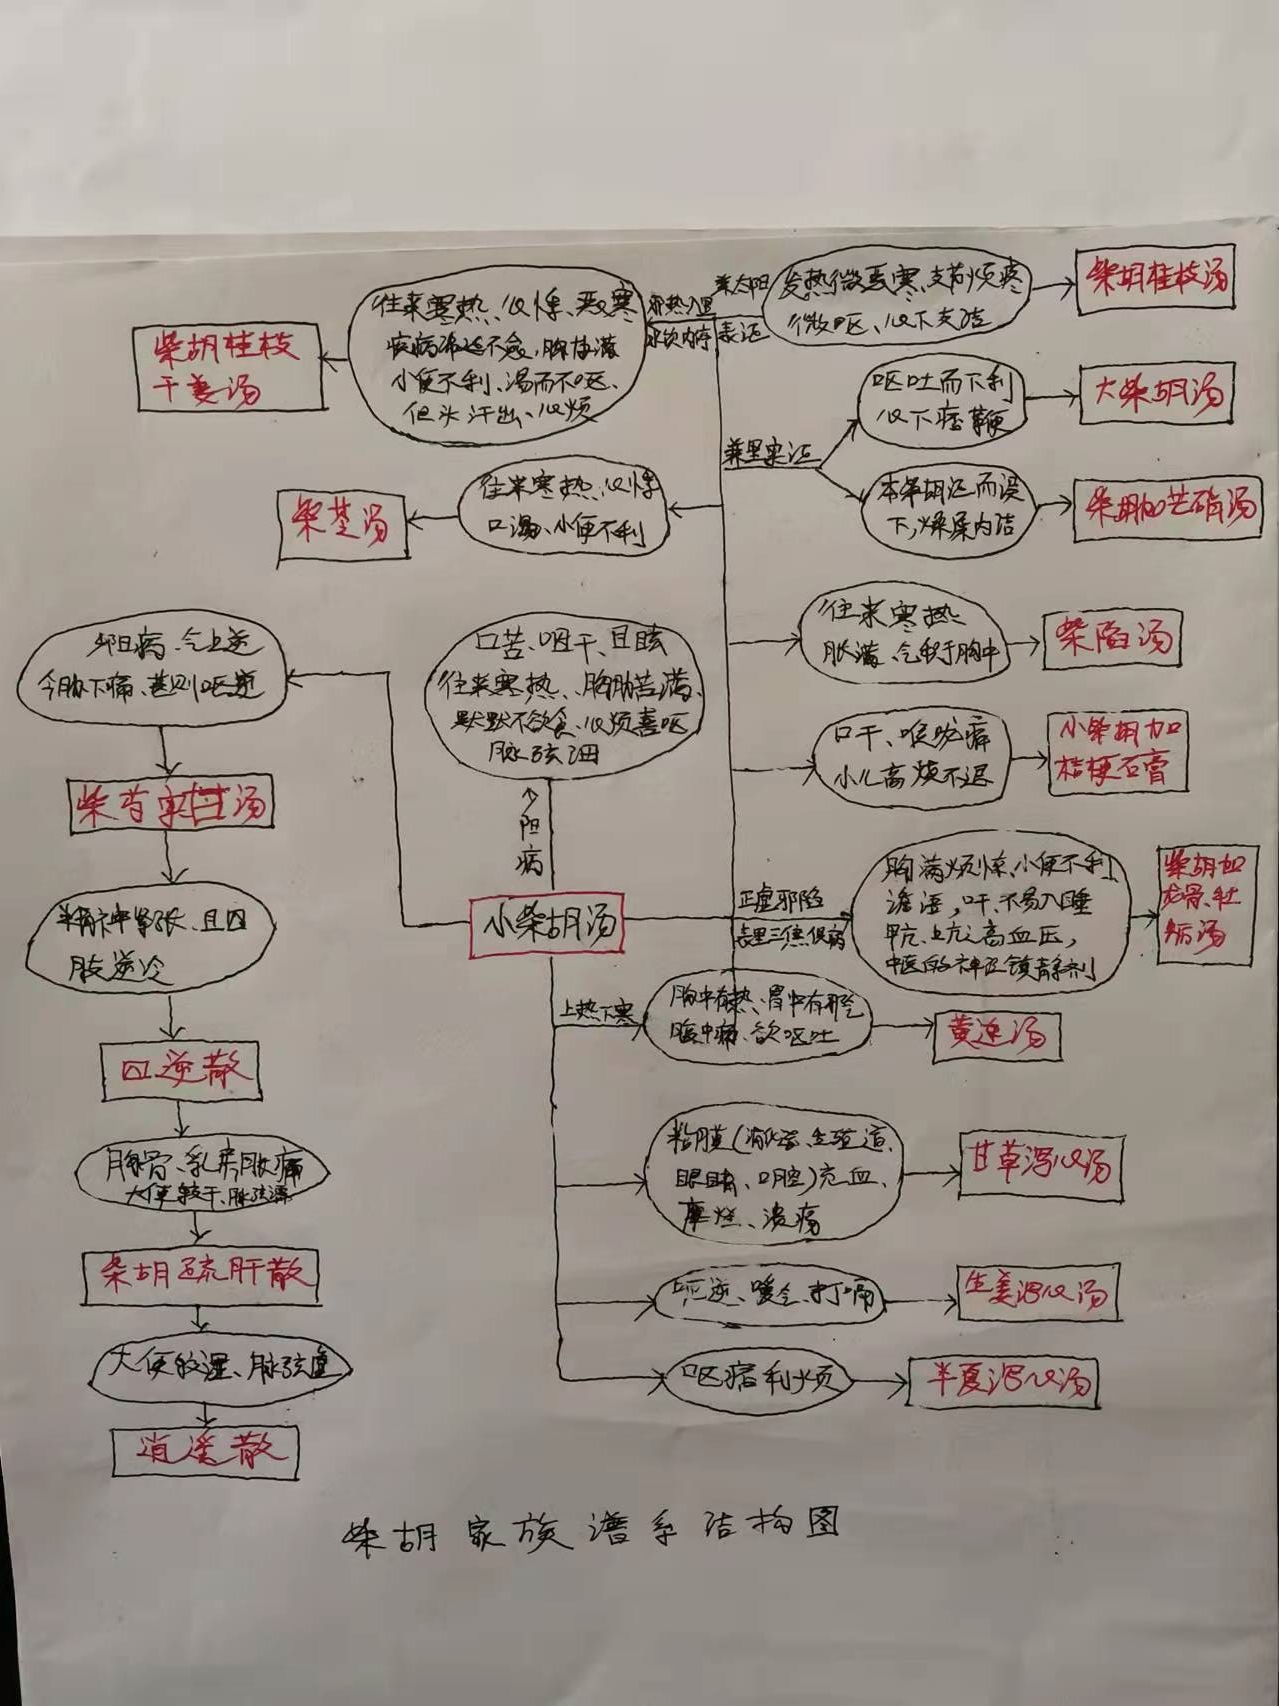 兼太阳
表证
发热微恶寒、支节烦疼
微呕、心下支结
柴胡桂枝汤
邪热入里
水饮内停
往来寒热、心悸、恶寒
疾病迁延不愈,胸胁满
小便不利、渴而不呕、
但头汗出、心烦
柴胡桂枝
干姜汤
兼里实证
呕吐而下利
心下痞鞕
大柴胡汤
本柴胡证而误
下,燥屎内结
柴胡加芒硝汤
往来寒热、心悸
口渴、小便不利
柴苓汤
往来寒热
胀满、气积于胸中
柴陷汤
口干、喉咙痛
小儿高烧不退
小柴胡加
桔梗石膏
口苦、咽干、目眩
往来寒热、胸胁苦满、
默默不欲食、心烦喜呕
脉弦细
阳病
小柴胡汤
正虚邪陷
表里三焦俱病
胸满烦惊、小便不利
谵语,吓、不易入睡
甲亢、亢高血压,
中医的神经镇静剂
柴胡加
龙骨、牡
蛎汤
上热下寒
胸中有热、胃中有邪气
腹中痛、欲呕吐
黄连汤
粘膜(消化道、生殖道、
眼睛、口腔)充血、
糜烂、溃疡
甘草泻心汤
呃逆、嗳气、打嗝
生姜泻心汤
呕痞利烦
半夏泻心汤
气上逆
今胁下痛、甚则呕逆
柴芍实甘汤
精神紧张、且四
肢逆冷
四逆散
胸骨、乳房胀痛
大便较干、脉弦滞
柴胡疏肝散
大便较溏、脉弦虚
逍遥散
柴胡家族谱系结构图